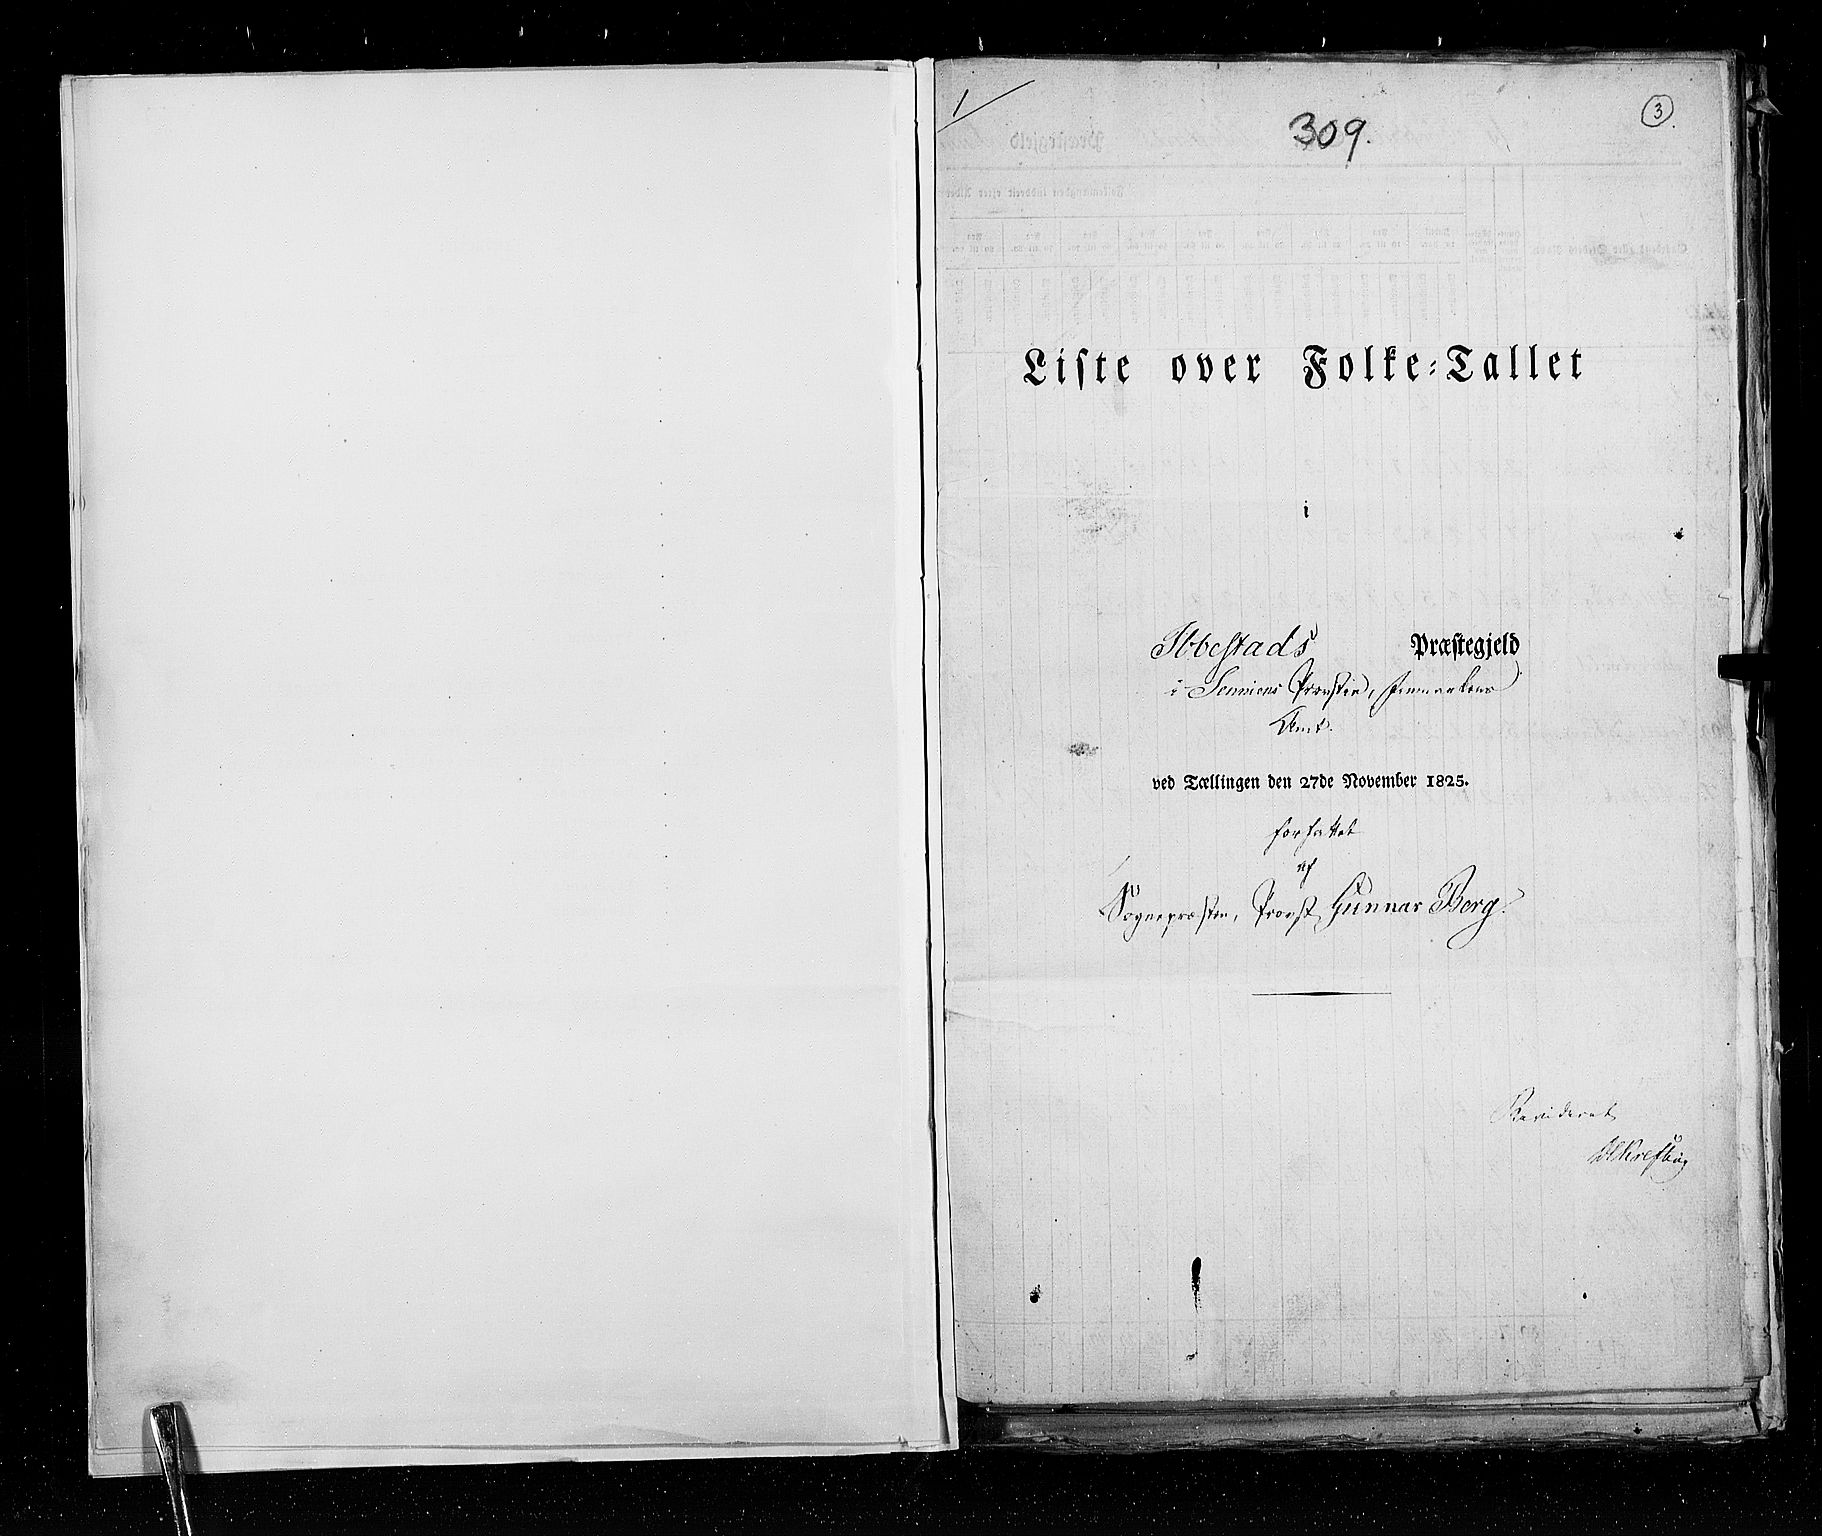 1
309.
3
Liste over Folke=Tallet
i
Ibbestads Præstegjeld
i Senniens Provstie, Finmarkens
Amt.
ved Tællingen den 27de November 1825.
forfattet
af
Sognepræsten, Provst Gunnar Berg.
Revideret